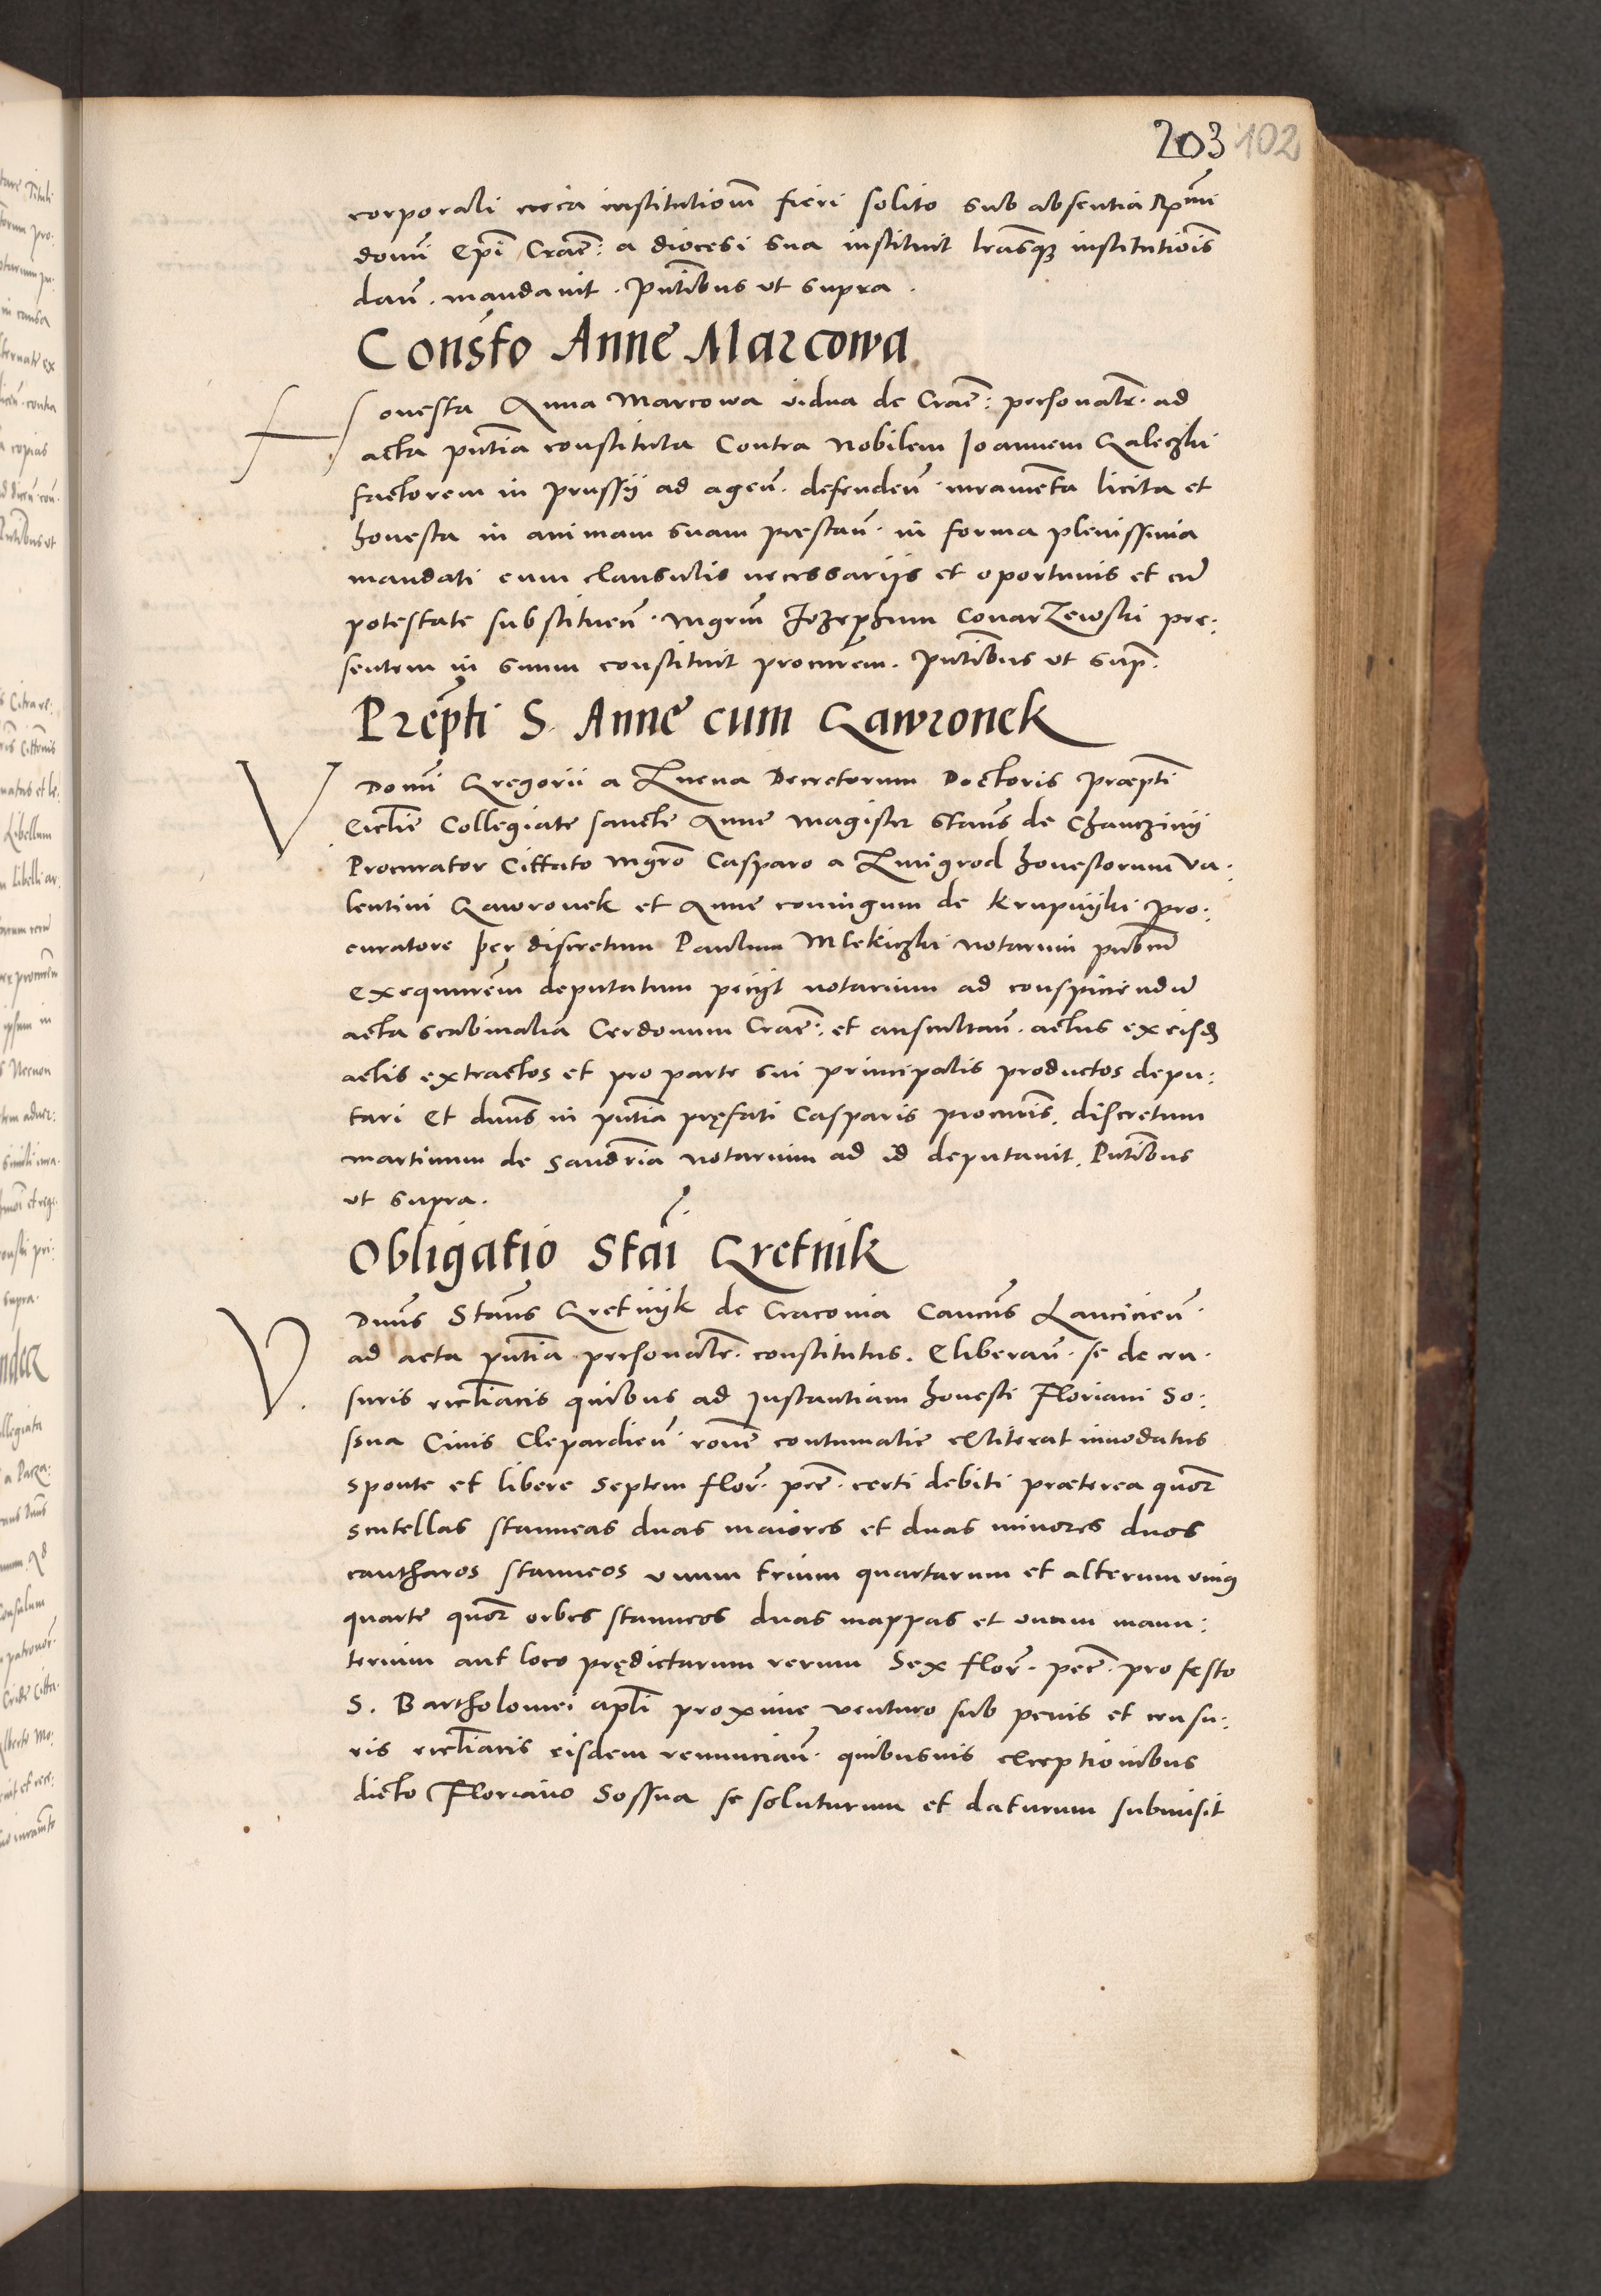 203 102
corporali circa institutiom̄ fieri solito sub absentia Rx̄mi
domī Ep̄i Crac̄: a diocesi sua instituit lr̄asq̄ꝫ institutiōis
dan̄. mandavit. Pn̄tibus ut supra.
Consto Anne Marcowa
Honesta Anna Marcowa vidua de Crac̄: personalr̄. ad
acta pn̄tia constituta Contra Nobilem Joannem Galeczki
factorem in Prussij ad agen̄. defenden̄. iuramenta licita et
honesta in animam suam prestan̄. in forma plenissima
mandati cum clausulis necessarijs et oportunis et cū
potestate substituen̄. mgrm̄ Jozephum Conarzewski pre:
sentem in suum constituit procurem̄. Pn̄tibus ut sup̄.
Prep̄ti S. Anne cum Gawronek
V Domī Gregorii a Znena Decretorum Doctoris Præpti
Eictie Collegiate sancte Anne magister Stan̄s de Chanczinij
Procurator Cittato mgrō Casparo a Zmigrod honestorum Va:
lentini Gawronek et Anne coniugum de Krupnijki pro:
curatore per discretum Paulum Mlekiczki notarium pub̄cū
exequurem̄ deputatum pecijt notarium ad conspiciendū
acta scabinalia Cerdonum Crac̄: et auscultan̄. actus ex eisdꝫ
actis extractos et pro parte sui principalis productos depu:
tari Et dnūs in pn̄tia pręfati Casparis procuris̄. discretum
martinum de Sandr̄ia notarium ad id deputavit. Pn̄tibus
ut supra.
Obligatio Stai Gretnik
V. Dnūs Stan̄s Gretnijk de Cracovia Cancūs Lancicien̄.
ad acta pn̄tia personalr̄. constitutus. Eliberan̄. se de cen:
suris eictiacis quibus ad Instantiam honesti Floriani So:
ssna Civis Clepardien̄. ron̄e contumatie exliterat innodatus
sponte et libere septem flor̄. pec̄. certi debiti præterea quor̄
scutellas stanneas duas maiores et duas minores duos
cantharos stanneos vnum trium quartarum et alterum vniꝰ
quarte quor̄ orbes stanneos duas mappas et vnam manu:
terium aut loco prędictarum rerum Sex flor̄. pec̄. pro festo
S. Bartholomei apl̄i proxime venturo sub penis et censu:
ris eictiacis eisdem renuncian̄. quibusvis exceptionibus
dicto Floriano Sossna se soluturum et daturum submisit